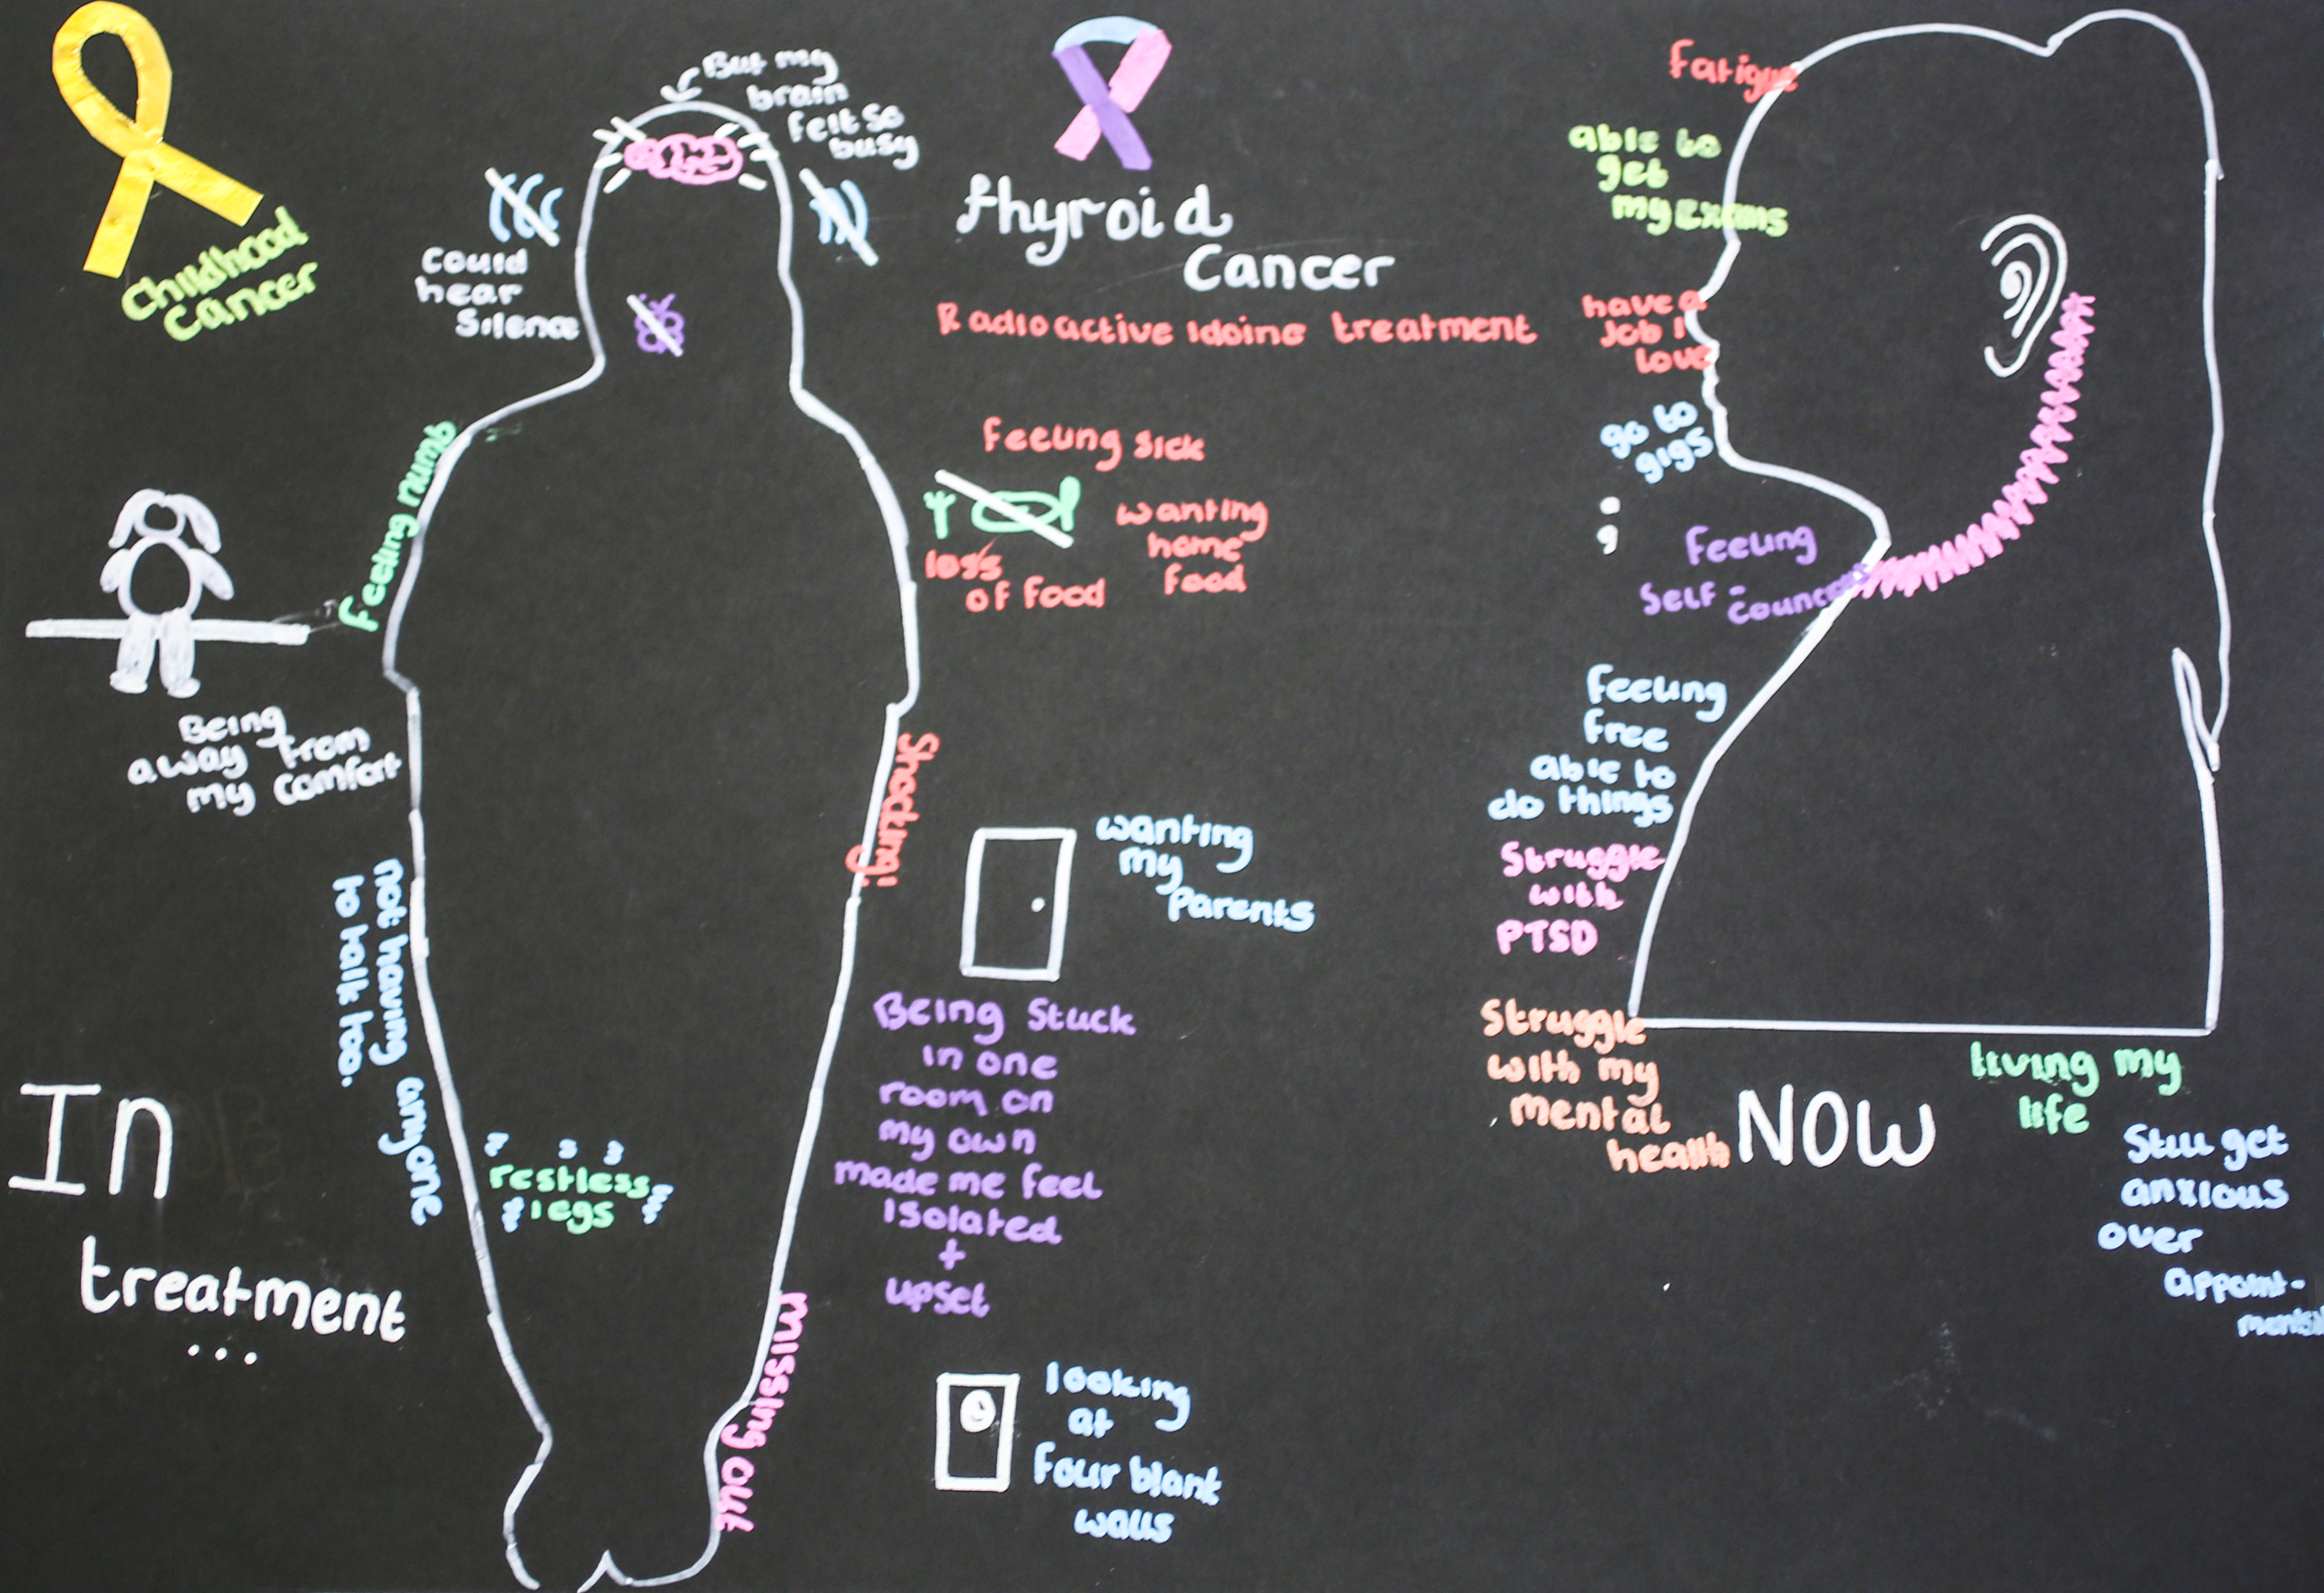 Childhood
cancer
But my
brain
felt so
busy
could
hear
Silence
thyroid
Cancer
Radioactive Idoine treatment
Feeling numb
Feeling sick
loss
of food
wanting
home
food
Being
away from
my comfort
Shocking!
not having anyone
to talk too.
wanting
my
parents
Being Stuck
in one
room on
my own
made me feel
isolated
+
upset
restless
legs
missing out
looking
at
four blank
walls
In
treatment
...
Fatigue
able to
get
my Exams
have a
Job I
love
go to
gigs
;
Feeling
Self-
Feeling
Free
able to
do things
Struggle
with
PTSD
Struggle
with my
mental
health
NOW
living my
life
Still get
anxious
over
appoint-
ments